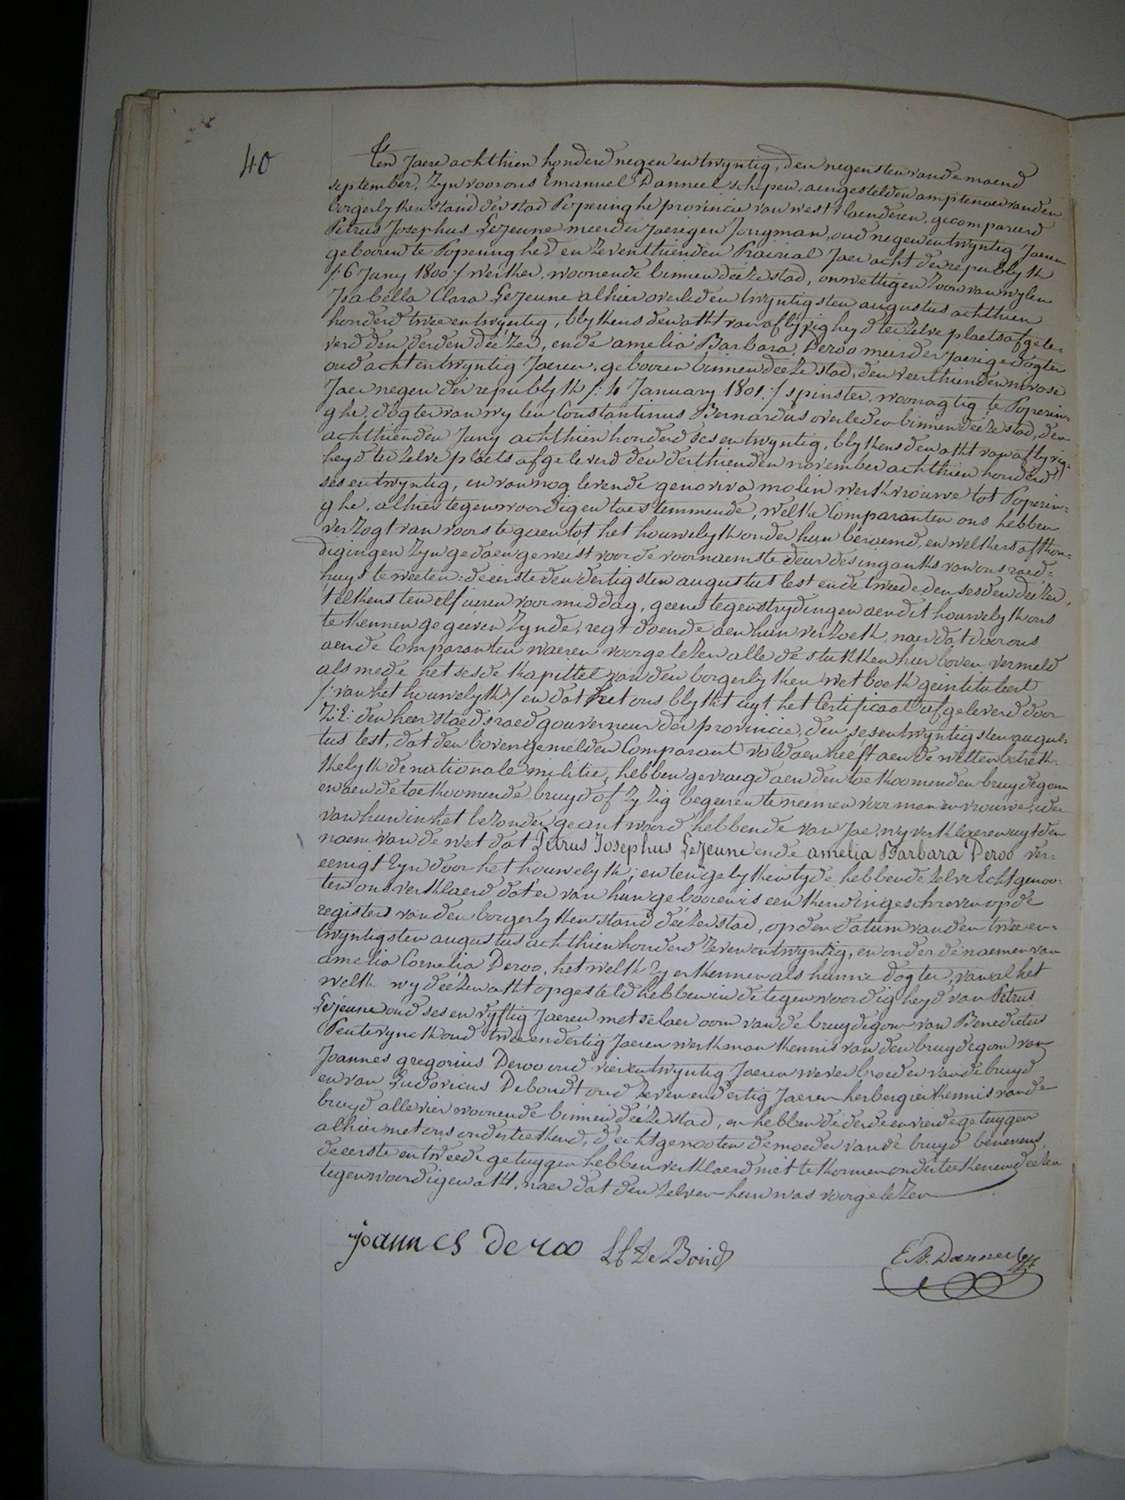 40
Ten Jaere achthien honderd negen en twyntig, den negensten van de maend
september, Zyn voor ons Emanuel Danneel schepen, aengestelden amptenaer van den
borgerlyken stand der stad Poperinghe provincie van west vlaenderen, gecompareerd
Petrus Josephus LeJeune meerderjaerigen Jongman, oud negen en twyntig Jaeren
geboren te Poperinghe den zeventhienden Prairial Jaer acht der republyk
/: 6 Juny 1800 :/ werker, woonende binnen deeze stad, onwettigen Zoon van wylen
Isabella Clara LeJeune alhier overleden twyntigsten augustus achthien
honderd twee en twyntig, blykens den akt van aflyvigheyd ter zelve plaets afgele-
verd den derden deezer, ende amelia Barbara Deroo meerderjaerige dogter
oud acht en twyntig Jaeren, gebooren binnen deeze stad, den veerthienden nivose
Jaer negen der republyk /: 4 January 1801 :/ spinster, woonagtig te Poperin-
ghe, dogter van wylen Constantinus Bernardus overleden binnen deeze stad, den
achthienden Juny achthien honderd ses en twyntig, blykens den akt van aflyvig-
heyd ter zelve plaets afgeleverd den derthienden november achthien honderd
ses en twyntig, en van nog levende genoveva molin werkvrouwe tot Poperin-
ghe, alhier tegenwoordig en toestemmende, welke Comparanten ons hebben
verzogt van voorts te gaen tot het houwelyk onder hun beraemd, en welkers afkon-
digingen Zyn gedaen geweest voor de voornaemste deur des ingankx van ons raed-
huys te weeten: de eerste den dertigsten augustus lest ende tweede den sesden deezer,
telkens ten elf ueren voor middag, geene tegenstrydingen aen dit houwelyk ons
te kennen gegeeven Zynde, regt doende aen hun verzoek, naer dat door ons
aen de Comparanten waeren voorgelezen alle de stukken hier boven vermeld
als mede het sesde kapittel van den borgerlyken wetboek geintituleert
/: van het houwelyk :/ en dat het ons blykt uyt het Certificaat afgeleverd door
Z: E: den heer staedsraed gouverneur der provincie, den ses en twyntigsten augus-
tus lest, dat den bovengemelden Comparant voldaen heeft aen de wetten betrek-
kelyk de nationale militie, hebben gevraegd aen den toekoomenden bruydegom
en aen de toekoomende bruyd of Zy Zig begeeren te neemen voor man en vrouwe, ider
van hun in het bezonder geantwoord hebbende van Jae, wy verklaeren uyt den
naem van de wet dat Petrus Josephus LeJeune ende amelia Barbara Deroo ver-
eenigt Zyn door het houwelyk; en ten gelyken tyde hebben de zelve Echtgenoo-
ten ons verklaerd dat er van hun gebooren is een kend ingeschreven op de
registers van den borgerlyken stand deezer stad, op den datum van den twee en
twyntigsten augustus achthien honderd zeven en twyntig, en onder de naemen van
amelia Cornelia Deroo, het welk Zy erkennen als hunne dogter, van al het
welk wy deezen akt opgesteld hebben in de tegenwoordigheyd van Petrus
LeJeune oud ses en vyftig Jaeren metselaer oom van de bruydegom van Benedictus
Peuterynck oud twee en dertig Jaeren werkman kennis van den bruydegom van
Joannes gregorius Deroo oud vier en twyntig Jaeren wever broeder van de bruyd
en van Ludovicus Debondt oud zeven en dertig Jaeren herbergier kennis van de
bruyd alle vier woonende binnen deeze stad, en hebben de derde en vierde getuygen
alhier met ons onderteekend, d'echtgenooten de moeder van de bruyd benevens
de eerste en tweede getuygen hebben verklaerd niet te konnen onderteekenen deezen
tegenwoordigen akt, naer dat den zelven hun was voorgelezen
joannes de roo L De Bondt E. A. Danneel